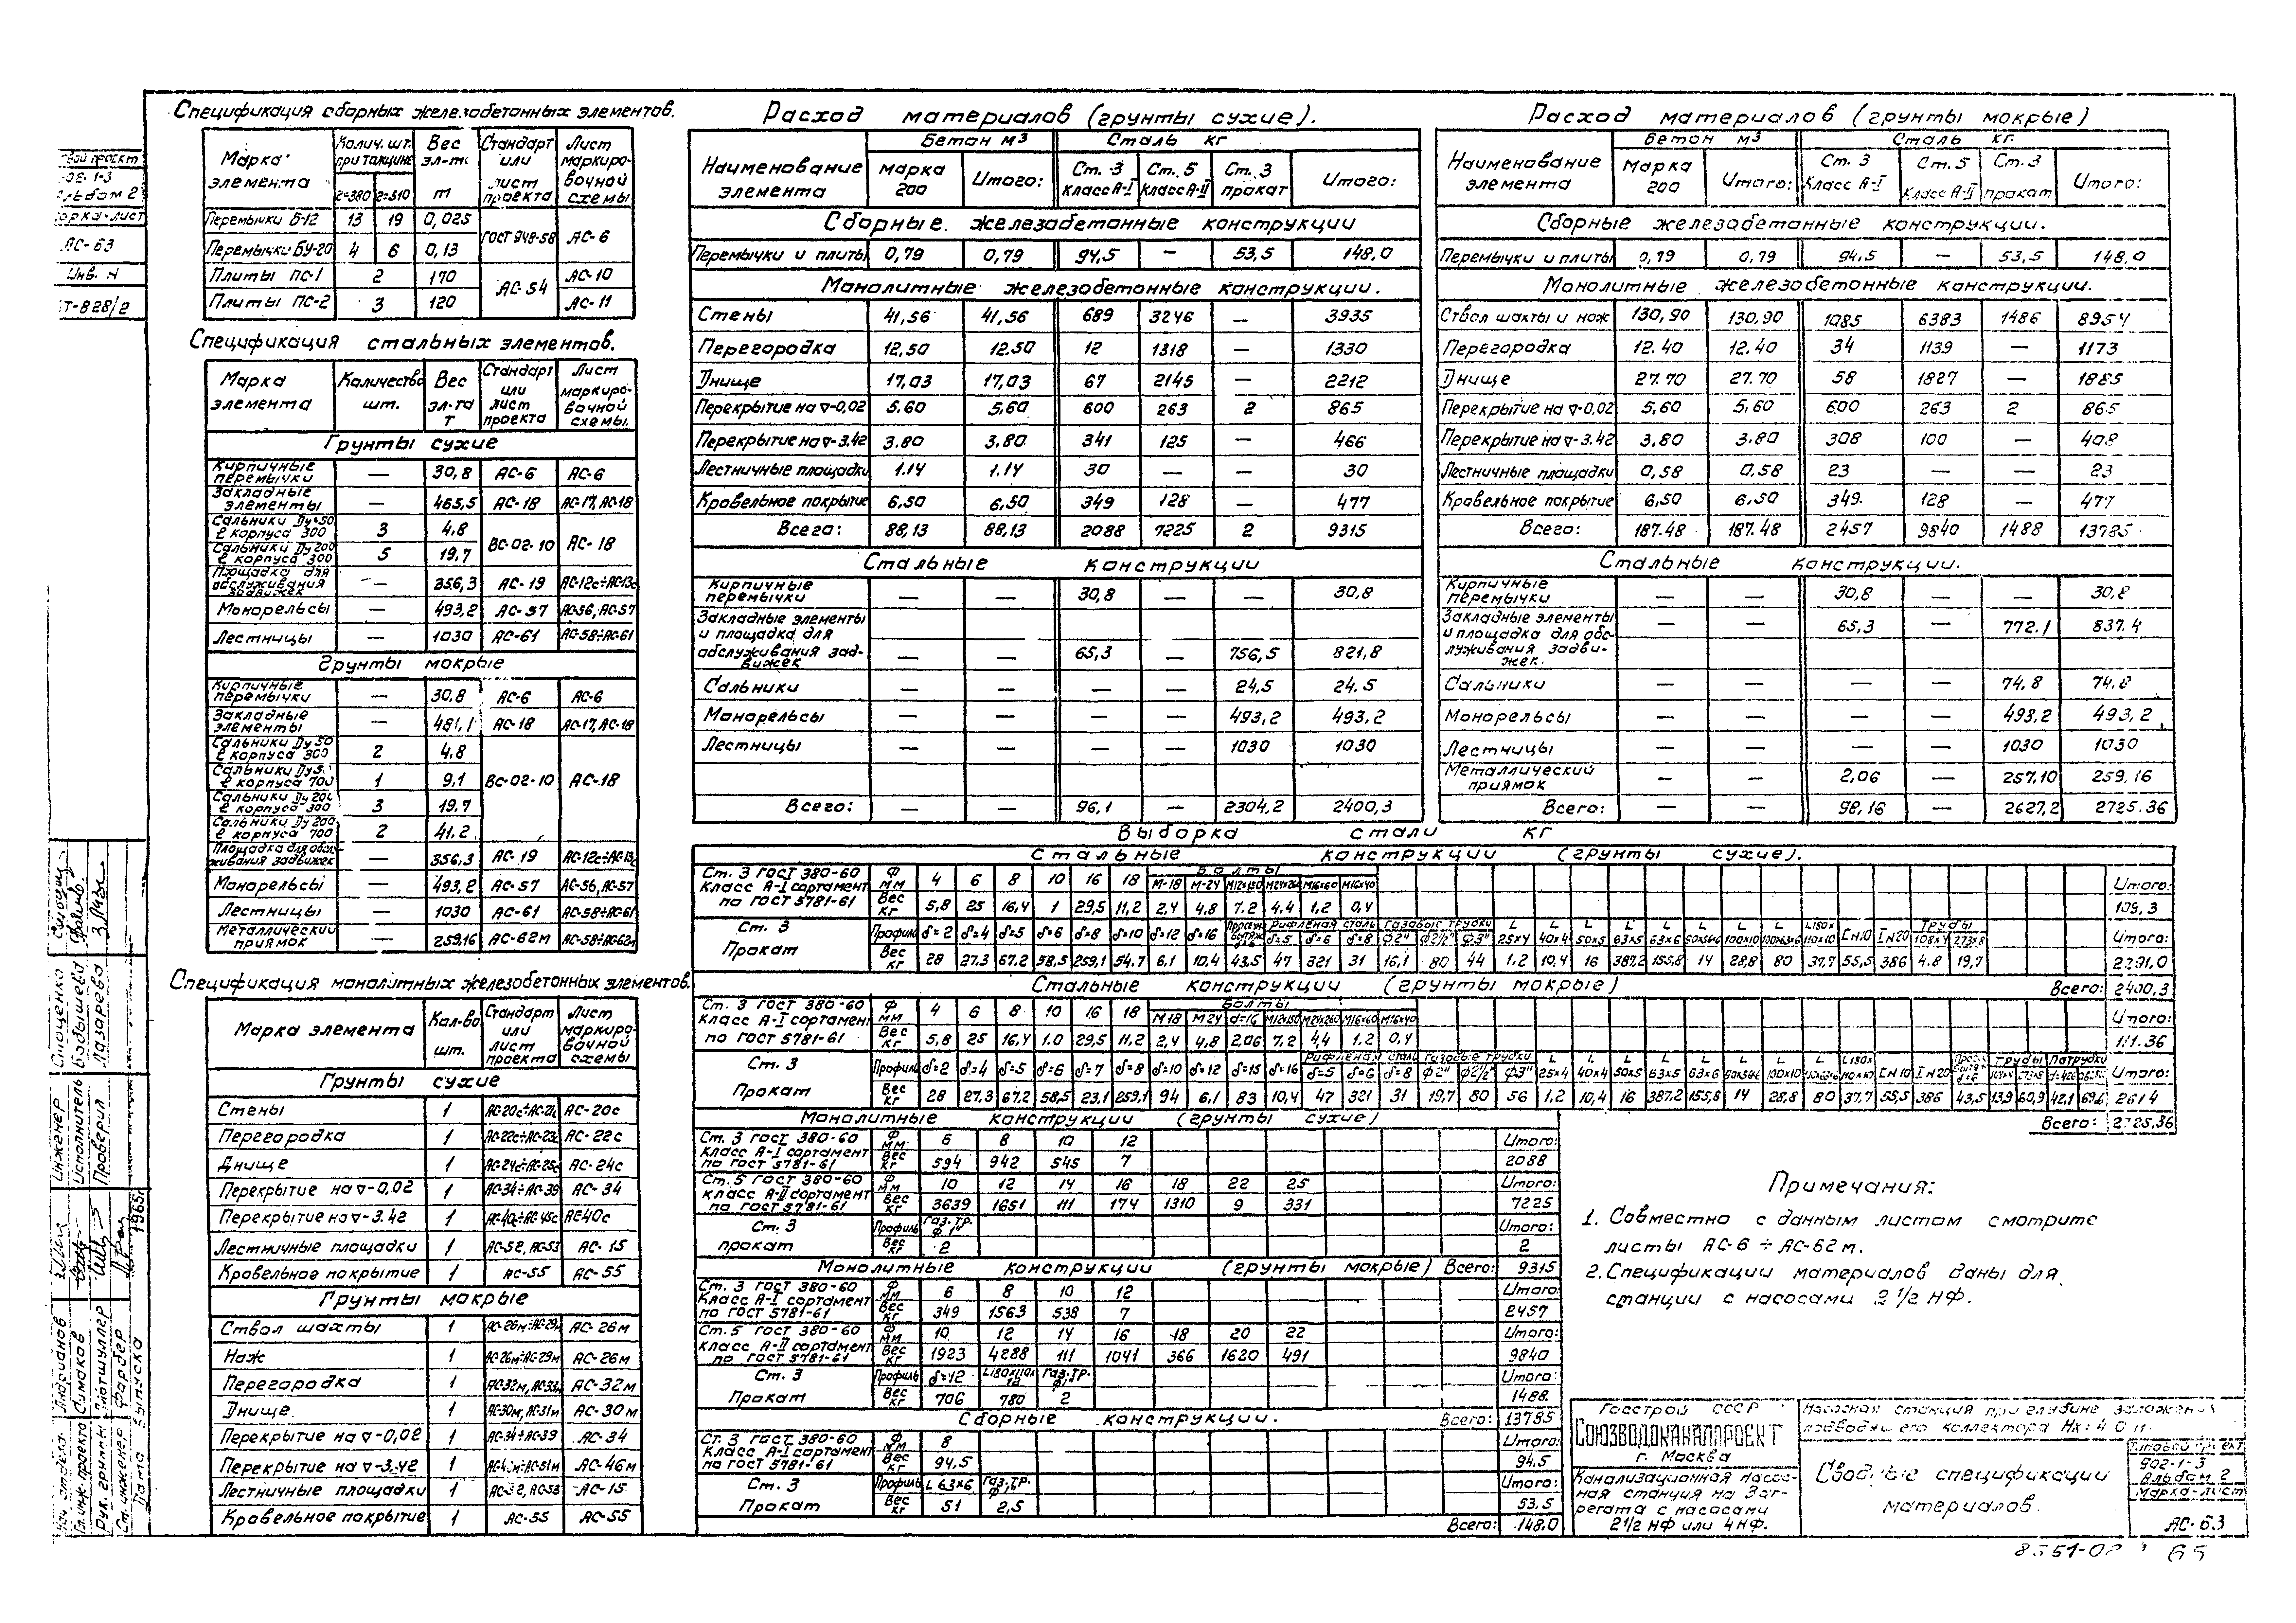 Спецификация сборных железобетонных элементов.
Марка элемента | Колич. шт. при толщине | Вес эл-та т | Стандарт или лист проекта | Лист маркировочной схемы
г=380 | г=510
Перемычки Б-12 | 13 | 19 | 0,025 | ГОСТ 948-58 | АС-6
Перемычки БУ-20 | 4 | 6 | 0,13
Плиты ПС-1 | 2 | 170 | АС-54 | АС-10
Плиты ПС-2 | 3 | 120 | АС-11
Спецификация стальных элементов.
Марка элемента | Количество шт. | Вес эл-та т | Стандарт или лист проекта | Лист маркировочной схемы.
Грунты сухие
Кирпичные перемычки | — | 30,8 | АС-6 | АС-6
Закладные элементы | — | 465,5 | АС-18 | АС-17, АС-18
Сальники Ду-50 ℓ корпуса 300 | 3 | 4,8 | ВС-02-10 | АС-18
Сальники Ду 200 ℓ корпуса 300 | 5 | 19,7
Площадка для обслуживания задвижек | — | 356,3 | АС-19 | АС-12с÷АС-13с
Монорельсы | — | 493,2 | АС-57 | АС-56, АС-57
Лестницы | — | 1030 | АС-61 | АС-58÷АС-61
Грунты мокрые
Кирпичные перемычки | — | 30,8 | АС-6 | АС-6
Закладные элементы | — | 481,1 | АС-18 | АС-17, АС-18
Сальники Ду 50 ℓ корпуса 300 | 2 | 4,8 | ВС-02-10 | АС-18
ℓ корпуса 700 | 1 | 9,1
Сальники Ду 200 ℓ корпуса 300 | 3 | 19.7
Сальники Ду 200 ℓ корпуса 700 | 2 | 41.2
Площадка для обслуживания задвижек | — | 356,3 | АС-19 | АС-12с÷АС-13с
Монорельсы | — | 493,2 | АС-57 | АС-56, АС-57
Лестницы | — | 1030 | АС-61 | АС-58÷АС-61
Металлический приямок | — | 259.16 | АС-62м
Спецификация монолитных железобетонных элементов.
Марка элемента | Кол-во шт. | Стандарт или лист проекта | Лист маркировочной схемы
Грунты сухие
Стены | 1 | АС-20с÷АС-21с | АС-20с
Перегородка | 1 | АС-22с÷АС-23с | АС-22с
Днище | 1 | АС-24с÷АС-25с | АС-24с
Перекрытие на ▽-0,02 | 1 | АС-34÷АС-39 | АС-34
Перекрытие на ▽-3.42 | 1 | АС-40с÷АС-45с | АС-40с
Лестничные площадки | 1 | АС-52, АС-53 | АС-15
Кровельное покрытие | 1 | АС-55 | АС-55
Грунты мокрые
Ствол шахты | 1 | АС-26м÷АС-29м | АС-26м
Нож | 1 | АС-26м÷АС-29м | АС-26м
Перегородка | 1 | АС-32м, АС-33м | АС-32м
Днище. | 1 | АС-30м, АС-31м | АС-30м
Перекрытие на ▽-0,02 | 1 | АС-34÷АС-39 | АС-34
Перекрытие на ▽-3.42 | 1 | АС-46м÷АС-51м | АС-46м
Лестничные площадки | 1 | АС-52, АС-53 | АС-15
Кровельное покрытие | 1 | АС-55 | АС-55
Расход материалов (грунты сухие).
Наименование элемента | Бетон м³ | Сталь кг
марка 200 | Итого: | Ст. 3 класс А-I | Ст. 5 класс А-II | Ст. 3 прокат | Итого:
Сборные железобетонные конструкции
Перемычки и плиты | 0,79 | 0,79 | 94,5 | — | 53,5 | 148,0
Монолитные железобетонные конструкции.
Стены | 41,56 | 41,56 | 689 | 3246 | — | 3935
Перегородка | 12,50 | 12.50 | 12 | 1318 | — | 1330
Днище | 17,03 | 17,03 | 67 | 2145 | — | 2212
Перекрытие на ▽-0,02 | 5.60 | 5,60 | 600 | 263 | 2 | 865
Перекрытие на ▽-3.42 | 3.80 | 3,80 | 341 | 125 | — | 466
Лестничные площадки | 1.14 | 1.14 | 30 | — | — | 30
Кровельное покрытие | 6,50 | 6,50 | 349 | 128 | — | 477
Всего: | 88,13 | 88,13 | 2088 | 7225 | 2 | 9315
Стальные конструкции
Кирпичные перемычки | — | — | 30,8 | — | — | 30,8
Закладные элементы и площадка для обслуживания задвижек | — | — | 65,3 | — | 756,5 | 821,8
Сальники | — | — | — | — | 24,5 | 24.5
Монорельсы | — | — | — | — | 493,2 | 493,2
Лестницы | — | — | — | — | 1030 | 1030
Всего: | — | — | 96,1 | — | 2304,2 | 2400,3
Расход материалов (грунты мокрые)
Наименование элемента | Бетон м³ | Сталь кг.
Марка 200 | Итого: | Ст. 3 Класс А-I | Ст. 5 Класс А-II | Ст. 3 прокат | Итого:
Сборные железобетонные конструкции.
Перемычки и плиты | 0,79 | 0,79 | 94,5 | — | 53,5 | 148,0
Монолитные железобетонные конструкции.
Ствол шахты и нож | 130,90 | 130,90 | 1085 | 6383 | 1486 | 8954
Перегородка | 12.40 | 12.40 | 34 | 1139 | — | 1173
Днище | 27.70 | 27.70 | 58 | 1827 | — | 1885
Перекрытие на ▽-0,02 | 5,60 | 5,60 | 600 | 263 | 2 | 865
Перекрытие на ▽-3.42 | 3.80 | 3,80 | 308 | 100 | — | 408
Лестничные площадки | 0,58 | 0,58 | 23 | — | — | 23
Кровельное покрытие | 6,50 | 6.50 | 349. | 128 | — | 477
Всего: | 187.48 | 187.48 | 2457 | 9840 | 1488 | 13785
Стальные конструкции.
Кирпичные перемычки | — | — | 30,8 | — | — | 30,8
Закладные элементы и площадка для обслуживания задвижек. | — | — | 65,3 | — | 772.1 | 837.4
Сальники | — | — | — | — | 74,8 | 74,8
Монорельсы | — | — | — | — | 493,2 | 493,2
Лестницы | — | — | — | — | 1030 | 1030
Металлический приямок | — | — | 2,06 | — | 257,10 | 259,16
Всего: | — | — | 98,16 | — | 2627,2 | 2725.36
Выборка стали кг
Стальные конструкции (грунты сухие).
Ст. 3 ГОСТ 380-60 Класс А-I сортамент по ГОСТ 5781-61
Ф мм | 4 | 6 | 8 | 10 | 16 | 18 | Болты М-18 | М-24 | М12х150 | М24х260 | М16х60 | М16х40 | Итого:
Вес кг | 5,8 | 25 | 16,4 | 1 | 29,5 | 11,2 | 2,4 | 4,8 | 7.2 | 4.4 | 1,2 | 0,4 | 109,3
Ст. 3 Прокат
Профиль | δ=2 | δ=4 | δ=5 | δ=6 | δ=8 | δ=10 | δ=12 | δ=16 | Рифленая сталь δ=5 | δ=6 | δ=8 | Газовые трубки Ф2" | Ф2½" | Ф3" | L 25х4 | 40х4 | 50х5 | 63х5 | 63х6 | 100х10 | [N10 | I N20 | Трубы 108х4 | 273х8 | Итого:
Вес кг | 28 | 27.3 | 67.2 | 58,5 | 259,1 | 54,7 | 6,1 | 10,4 | 43,5 | 47 | 321 | 31 | 16,1 | 80 | 44 | 1.2 | 10,4 | 16 | 387,2 | 155,8 | 14 | 28,8 | 80 | 37,7 | 55,5 | 386 | 4.8 | 19,7 | 2291.0
Всего: 2400,3
Стальные конструкции (грунты мокрые)
Ст. 3 ГОСТ 380-60 Класс А-I сортамент по ГОСТ 5781-61
Ф мм | 4 | 6 | 8 | 10 | 16 | 18 | Болты М18 | М24 | d=16 | М12х150 | М24х260 | М16х60 | М16х40 | Итого:
Вес кг | 5,8 | 25 | 16,4 | 1.0 | 29,5 | 11,2 | 2,4 | 4,8 | 2,06 | 7,2 | 4,4 | 1.2 | 0,4 | 111.36
Ст. 3 Прокат
Профиль | δ=2 | δ=4 | δ=5 | δ=6 | δ=7 | δ=8 | δ=10 | δ=12 | δ=15 | δ=16 | Рифленая сталь δ=5 | δ=6 | δ=8 | Газовые трубки Ф2" | Ф2½" | Ф3" | L 25х4 | 40х4 | 50х5 | 63х5 | 63х6 | 100х10 | [N10 | I N20 | Трубы | Патрубки | Итого:
Вес кг | 28 | 27,3 | 67,2 | 58,5 | 23,1 | 259,1 | 94 | 6,1 | 83 | 10,4 | 47 | 321 | 31 | 19,7 | 80 | 56 | 1,2 | 10,4 | 16 | 387.2 | 155,8 | 14 | 28,8 | 80 | 37.7 | 55,5 | 386 | 43,5 | 13,9 | 60,9 | 42,1 | 69,6 | 2614
Всего: 2725,36
Монолитные конструкции (грунты сухие)
Ст. 3 ГОСТ 380-60 Класс А-I сортамент по ГОСТ 5781-61
Ф мм | 6 | 8 | 10 | 12 | Итого:
Вес кг | 594 | 942 | 545 | 7 | 2088
Ст. 5 ГОСТ 380-60 Класс А-II сортамент по ГОСТ 5781-61
Ф мм | 10 | 12 | 14 | 16 | 18 | 22 | 25 | Итого:
Вес кг | 3639 | 1651 | 111 | 174 | 1310 | 9 | 331 | 7225
Ст. 3 прокат
Профиль | Газ.тр. Ф1" | Итого:
Вес кг | 2 | 2
Монолитные конструкции (грунты мокрые) Всего: 9315
Ст. 3 ГОСТ 380-60 Класс А-I сортамент по ГОСТ 5781-61
Ф мм | 6 | 8 | 10 | 12 | Итого:
Вес кг | 349 | 1563 | 538 | 7 | 2457
Ст. 5 ГОСТ 380-60 Класс А-II сортамент по ГОСТ 5781-61
Ф мм | 10 | 12 | 14 | 16 | 18 | 20 | 22 | Итого:
Вес кг | 1923 | 4288 | 111 | 1041 | 366 | 1620 | 491 | 9840
Ст. 3 Прокат
Профиль | δ=12 | Газ.тр. Ф1" | Итого:
Вес кг | 706 | 780 | 2 | 1488
Сборные конструкции. Всего: 13785
Ст. 3 ГОСТ 380-60 Класс А-I сортамент по ГОСТ 5781-61
Ф мм | 8 | Итого:
Вес кг | 94,5 | 94.5
Ст. 3 Прокат
Профиль | L 63х6 | Газ.тр. | Итого:
Вес кг | 51 | 2,5 | 53.5
Всего: 148.0
Примечания:
1. Совместно с данным листом смотрите
листы АС-6 ÷ АС-62м.
2. Спецификации материалов даны для
станции с насосами 2½ НФ.
Госстрой СССР
СОЮЗВОДОКАНАЛПРОЕКТ
г. Москва
Канализационная насос-
ная станция на 3 аг-
регата с насосами
2½ НФ или 4 НФ.
Насосная станция при глубине заложения
подводящего коллектора Нк=4.0 м.
Сводные спецификации
материалов.
Типовой проект
902-1-3
Альбом 2
Марка-лист
АС-63
65
АС-63
Инв. №
Т-828/2
Инженер
Исполнитель
Проверил
Стаценко
Бабышева
Лазарева
Гл. инж. проекта
Ст. инженер
Фарбер
Дата выпуска
1965г.